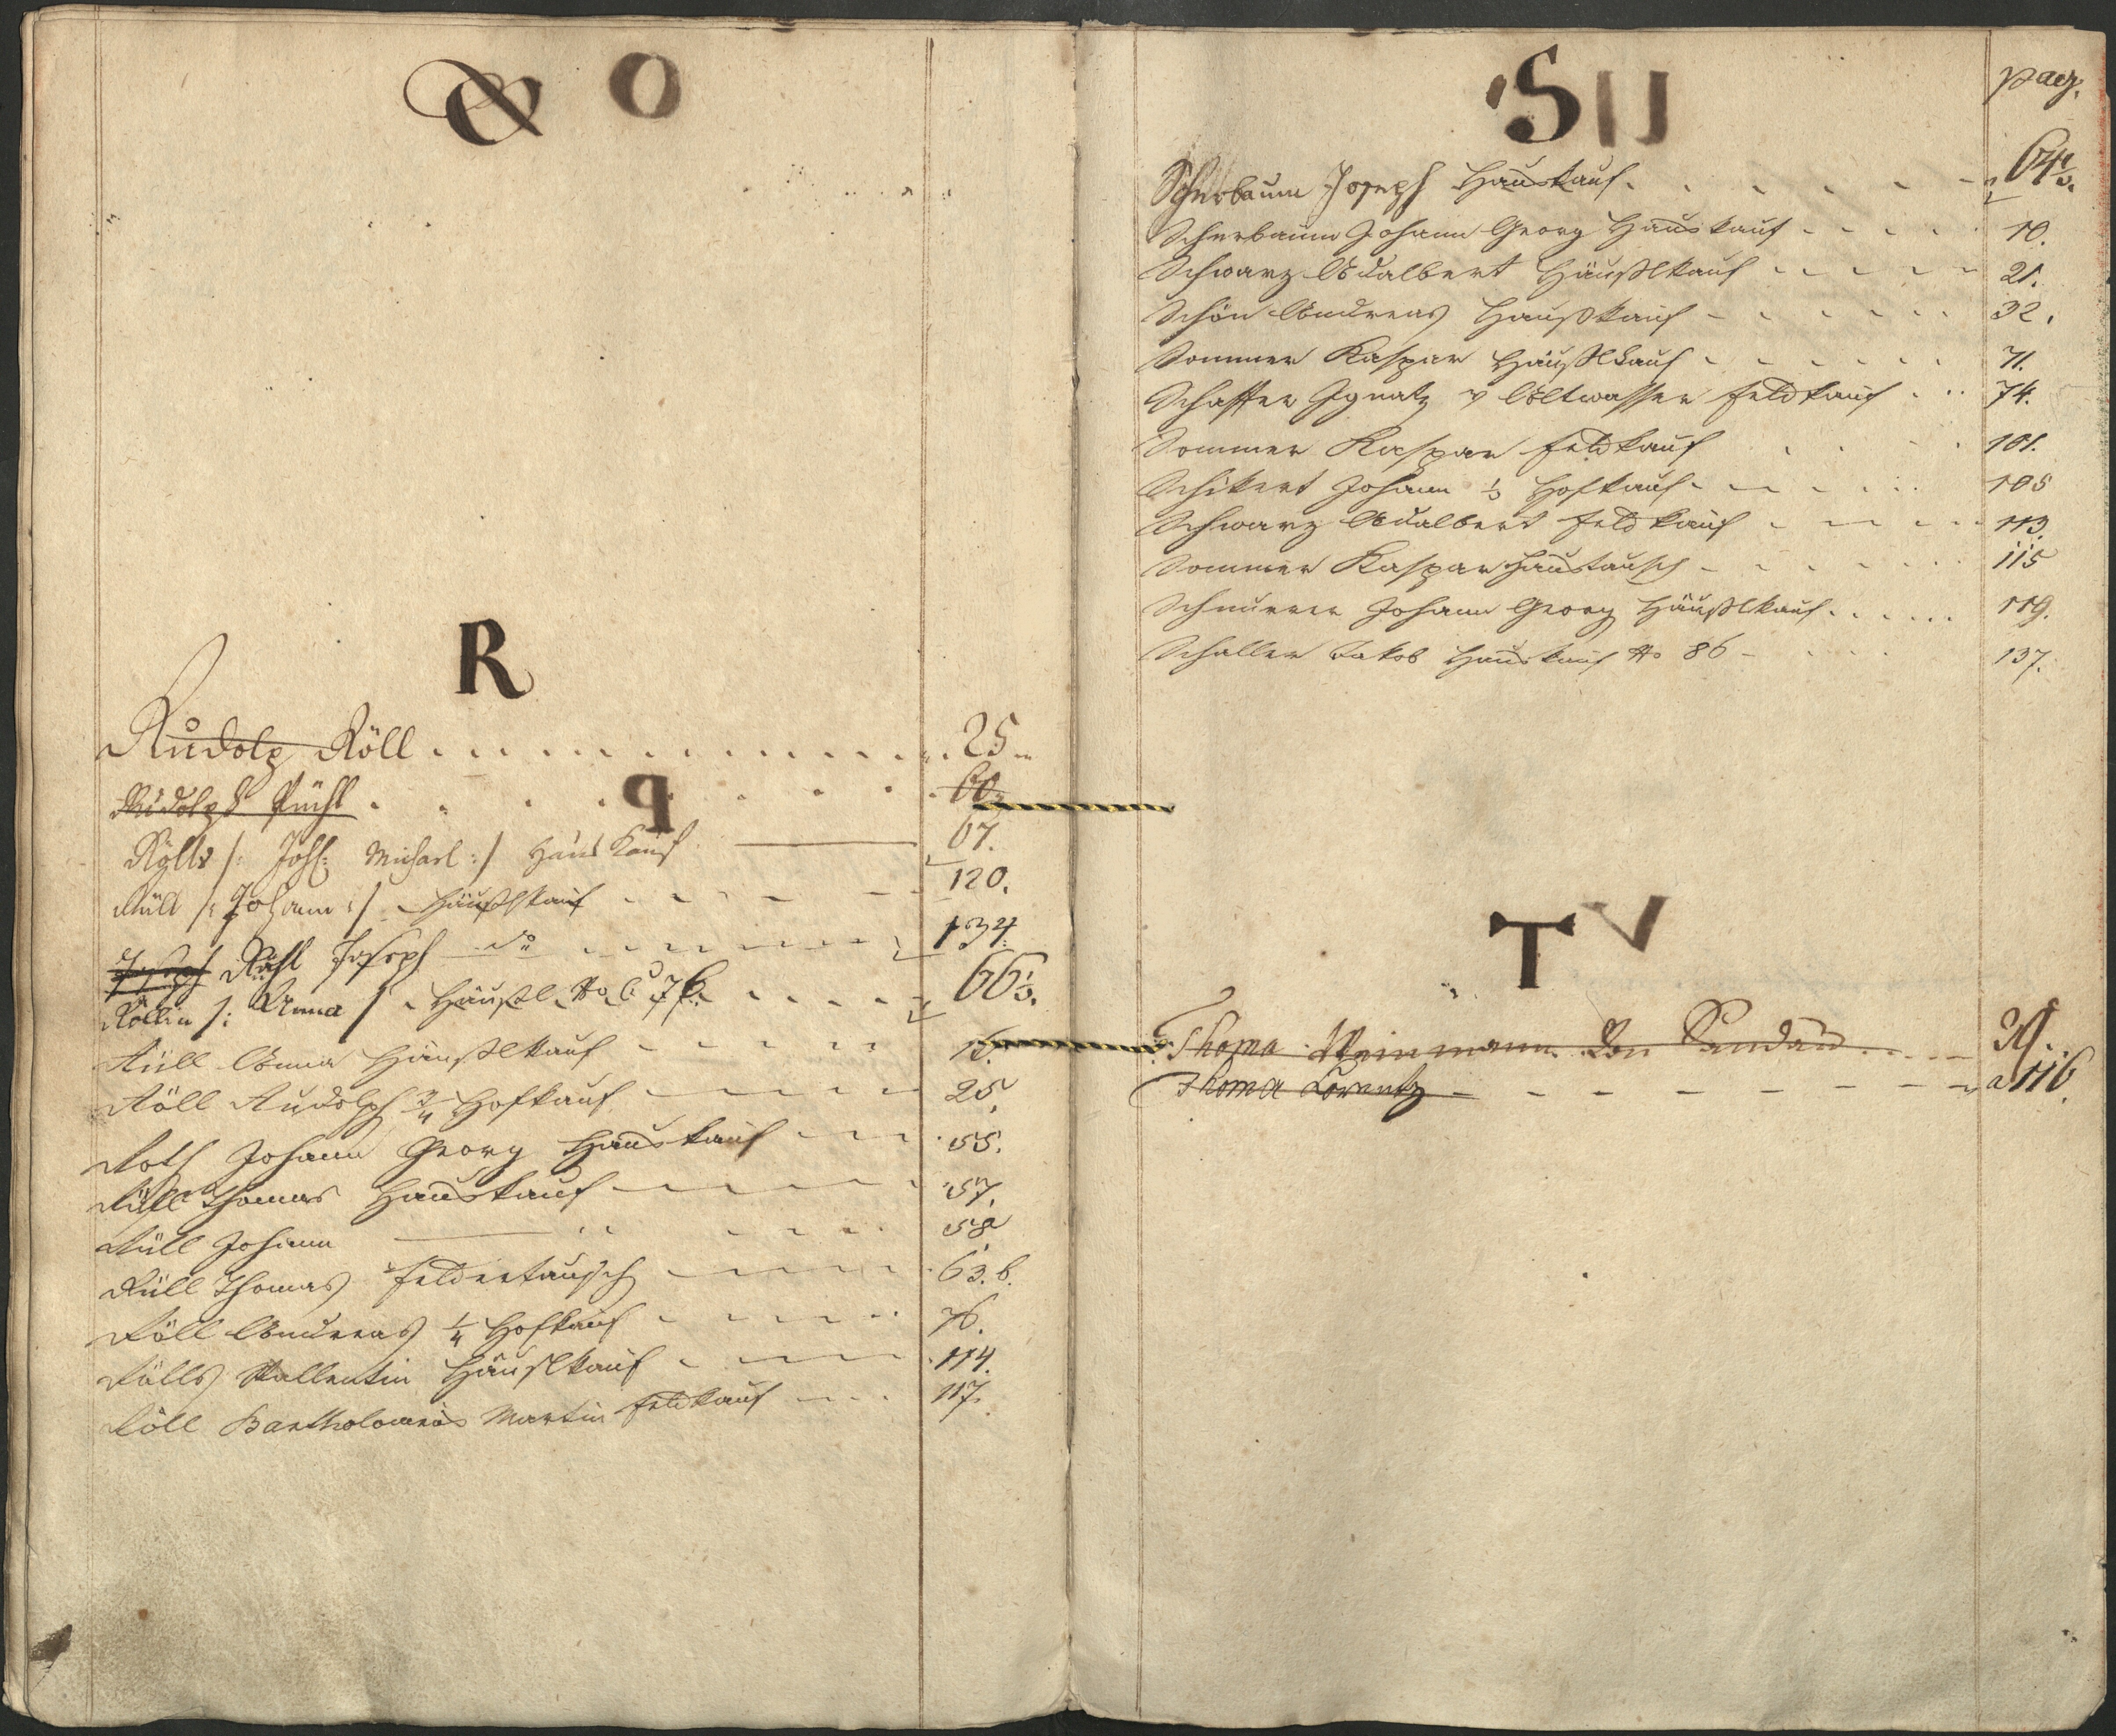 Q O
R
Rudolp Röll 25
Rudolph Rühl 60.
P
Rölls /: Joh: Michael :/ Haus Kauf 67.
Rüll /: Johann :/ Häußlkauf 120.
Joseph Rühl Joseph do 134.
Röllin /: Anna / Häußl No C 76. 66½.
Rüll Anna Häußlkauf
Röll Rudolph ¾ Hofkauf 25
Roth Johann Georg Hauskauf 55.
Rüll Thomas Hauskauf 57.
Rüll Johann 58
Rüll Thomas Feldertausch 63.b.
Röll Andreas ¼ Hofkauf 76.
Rölls Vallentin Häuslkauf 114.
Röll Bartholomeus Martin Feldkauf 117.
S U
pag.
Scherbaum Joseph Hauskauf 64½.
Scherbaum Johann Georg Hauskauf 10.
Schwarz Adalbert Häußlkauf 21.
Schön Andreas Haußkauf 32.
Sommer Kaspar Häußlkauf 71.
Schaffer Ignatz v Altwasser Feldkauf 74.
Sommer Kaspar Feldkauf 101.
Schikert Johann ½ Hofkauf 105
Schwarz Adalbert Feldkauf 113.
Sommer Kaspar Haustausch 115
Schnurrer Johann Georg Häußlkauf 119.
Schaller Jakob Hauskauf No 86 137.
T V
Thoma Weinmann Von
Thoma Lorentz 116.